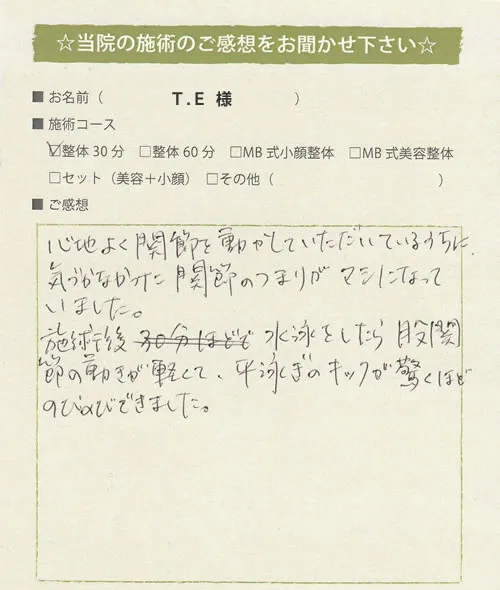 ☆当院の施術のご感想をお聞かせ下さい☆
■ お名前（ T.E 様 ）
■ 施術コース
☑整体 30 分 □整体 60 分 □MB 式小顔整体 □MB 式美容整体
□セット（美容＋小顔） □その他（ ）
■ ご感想
心地よく関節を動かしていただいているうちに、
気づかなかった関節のつまりが マシになって
いました。
施術後 30分ほどで 水泳をしたら 股関
節の動きが軽くて、平泳ぎのキックが驚くほど
のびのびできました。